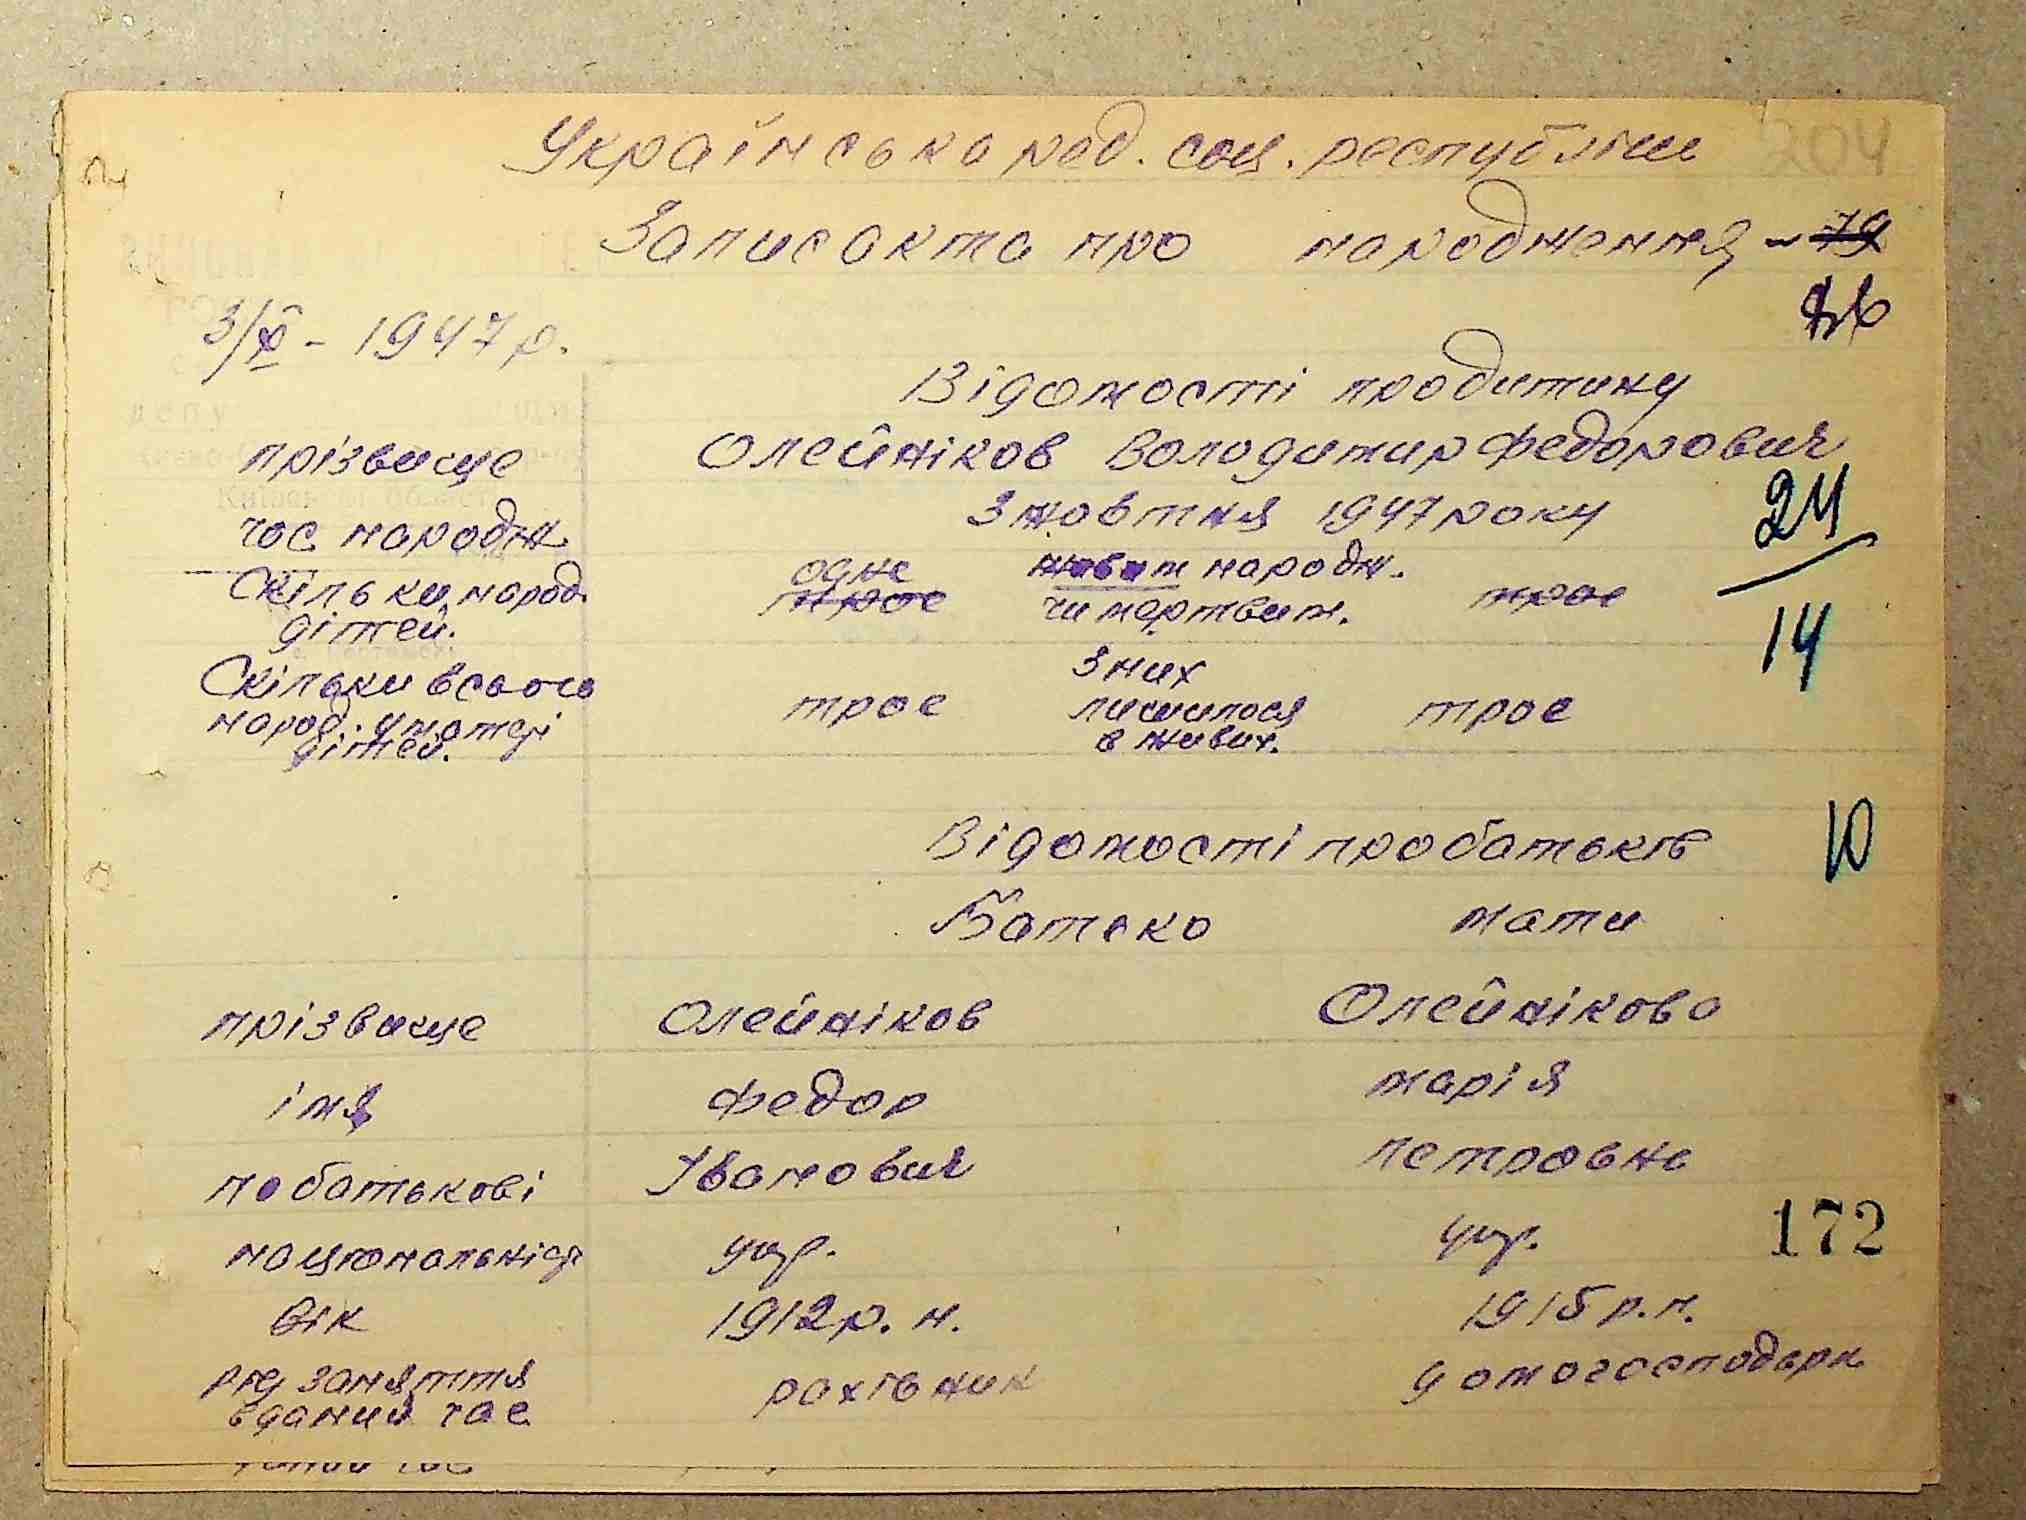 204
Українська рад. соц. республіки
Запис акта про народження - 79
3/X - 1947 р.
Відомості про дитину
прізвище Олейніков Володимир Федорович
час народж 3 жовтня 1947 року
24
Скільки народ. одне живим народж. троє
трое
дітей. чи мертвим.
14
Скільки всього З них
народ. у матері троє лишилося троє
дітей. в живих.
Відомості про батьків
10
Батько мати
прізвище Олейніков Олейнікова
імя Федор марія
по батькові Іванович петровна
національніст укр. укр.
172
вік 1912 р. н. 1915 р. н.
рід заняття рахівник домогосподарк
в даний час